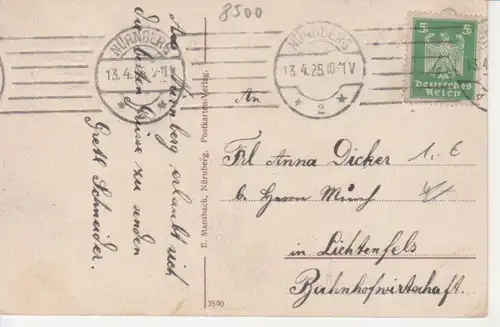 8500
NÜRNBERG
13.4.25.10-11V
* 2 *
NÜRNBERG
13.4.25.10-11V
* 2 *
5 5
Deutsches
Reich
Aus Nürnberg erlaubt sich
die besten Grüsse zu senden
Gretl Schneider.
D. Mansbach, Nürnberg. Postkarten-Verlag.
3590
An
Frl Anna Dicker
b. Herrn Münch
in Lichtenfels
Bahnhofwirtschaft.
1.-€